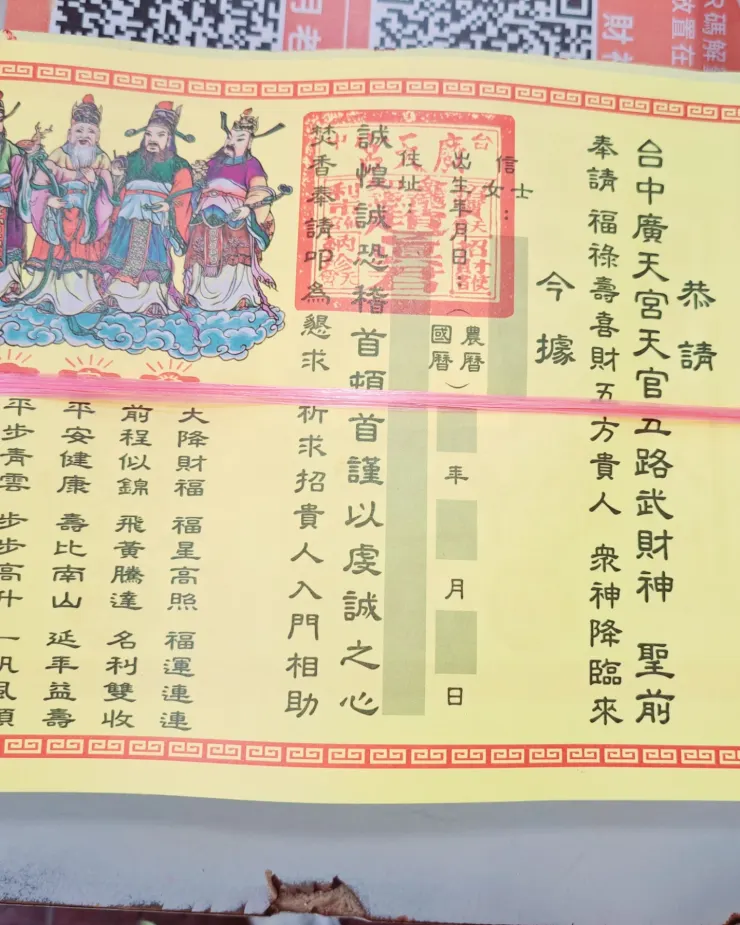 恭請
台中廣天宮天官五路武財神 聖前
奉請 福祿壽喜財五方貴人 眾神降臨來
今據
信士女：
出生年月日：(農曆國曆) 年 月 日
住址：
誠惶誠恐稽首頓首謹以虔誠之心
焚香奉請叩為懇求 祈求招貴人入門相助
大降財福 福星高照 福運連連
前程似錦 飛黃騰達 名利雙收
平安健康 壽比南山 延年益壽
平步青雲 步步高升 一帆風順
月老
財神
碼解
放置在